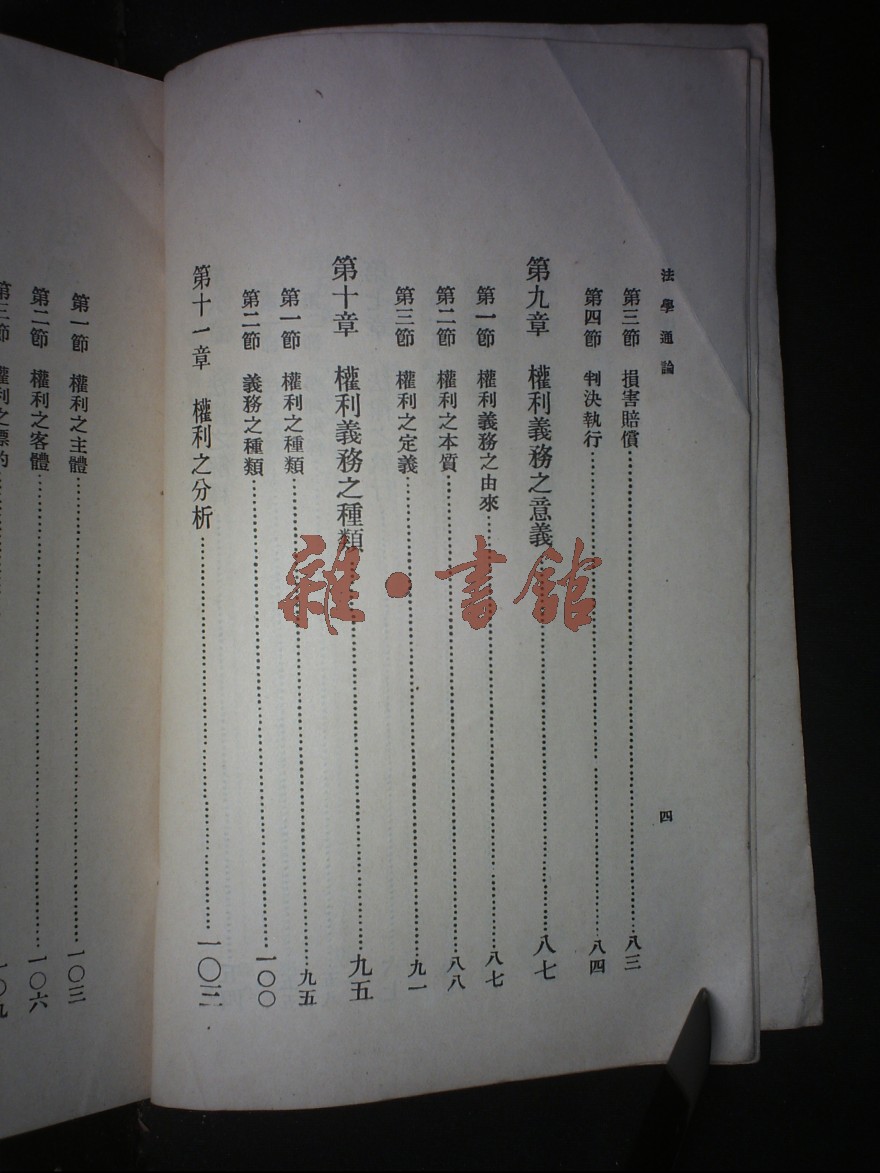 法學通論
四
第三節 損害賠償……八三
第四節 判決執行……八四
第九章 權利義務之意義……八七
第一節 權利義務之由來……八七
第二節 權利之本質……八八
第三節 權利之定義……九一
第十章 權利義務之種類……九五
第一節 權利之種類……九五
第二節 義務之種類……一〇〇
第十一章 權利之分析……一〇三
第一節 權利之主體……一〇三
第二節 權利之客體……一〇六
第三節 權利之標的……一〇九
雜·書館